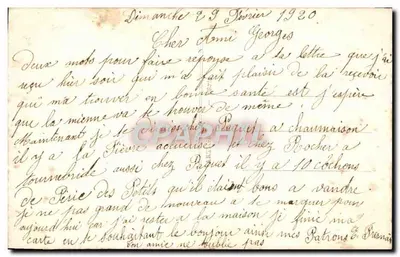 Dimanche 29 Février 1920.
Cher Ami Georges
deux mots pour faire réponse a te lettre que j'ai
reçu hier soir qui m'a fait plaisir de la recevoir
qui ma trouver en bonne santé est j'espère
que la mienne va te trouve de même
Maintenant je te Paquet a chaumaison
il y a la Fièvre acteuse et chez Rocher a
tournebride aussi chez Paquet il y a 10 cochons
de Péric des Potits qu'il étaient bons a vandre
je ne pas grand de nouveau a te marquer pour
aujourd'hui car j'ai resté a la maison je finie ma
carte en te souhaitant le bonjour ainsi mes Patrons
ton amie ne oublie pas